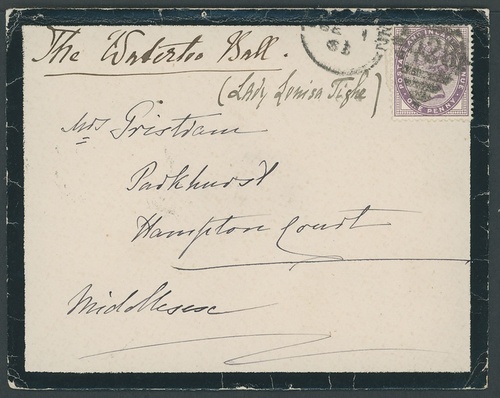 The Waterloo Ball.
(Lady Louisa Tighe)
Mrs Tristram
Parkhurst
Hampton Court
Middlesex
SE 1
81
ONE PENNY